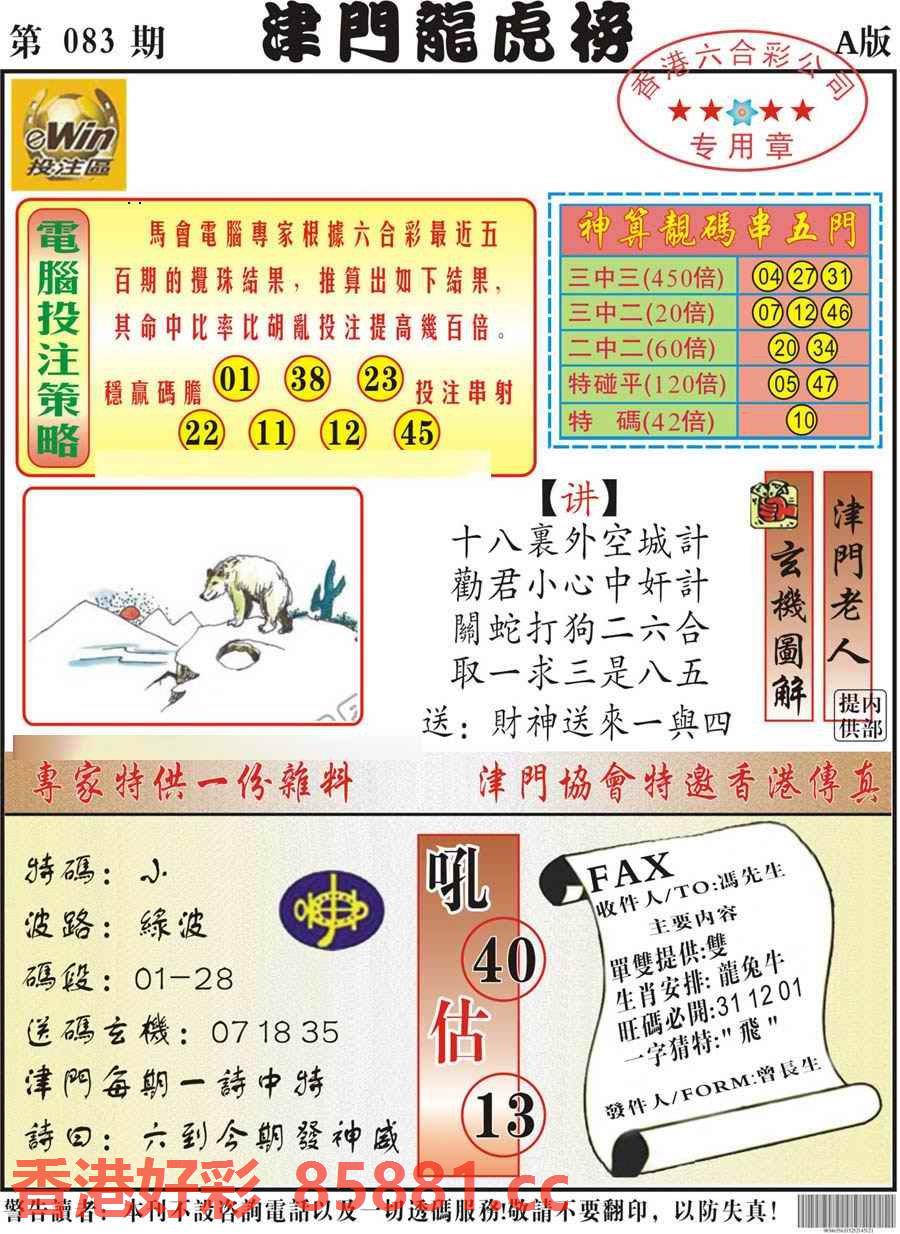 第 083 期
津門龍虎榜
A版
香港六合彩公司
专用章
eWin
投注區
電腦投注策略
馬會電腦專家根據六合彩最近五
百期的攪珠結果，推算出如下結果，
其命中比率比胡亂投注提高幾百倍。
穩贏碼膽 01 38 23 投注串射
22 11 12 45
神算靚碼串五門
三中三(450倍) 04 27 31
三中二(20倍) 07 12 46
二中二(60倍) 20 34
特碰平(120倍) 05 47
特 碼(42倍) 10
【讲】
十八裏外空城計
勸君小心中奸計
關蛇打狗二六合
取一求三是八五
送：財神送來一與四
玄機圖解
津門老人
提供
内部
專家特供一份雜料
津門協會特邀香港傳真
特碼：小
波路：綠波
碼段：01-28
送碼玄機：07 18 35
津門每期一詩中特
詩曰：六到今期發神威
吼
40
估
13
FAX
收件人/TO:馮先生
主要内容
單雙提供:雙
生肖安排: 龍兔牛
旺碼必開:31 12 01
一字猜特:" 飛 "
發件人/FORM:曾長生
香港好彩 85881.cc
警告讀者：本刊不設咨詢電話以及一切透碼服務!敬請不要翻印，以防失真!